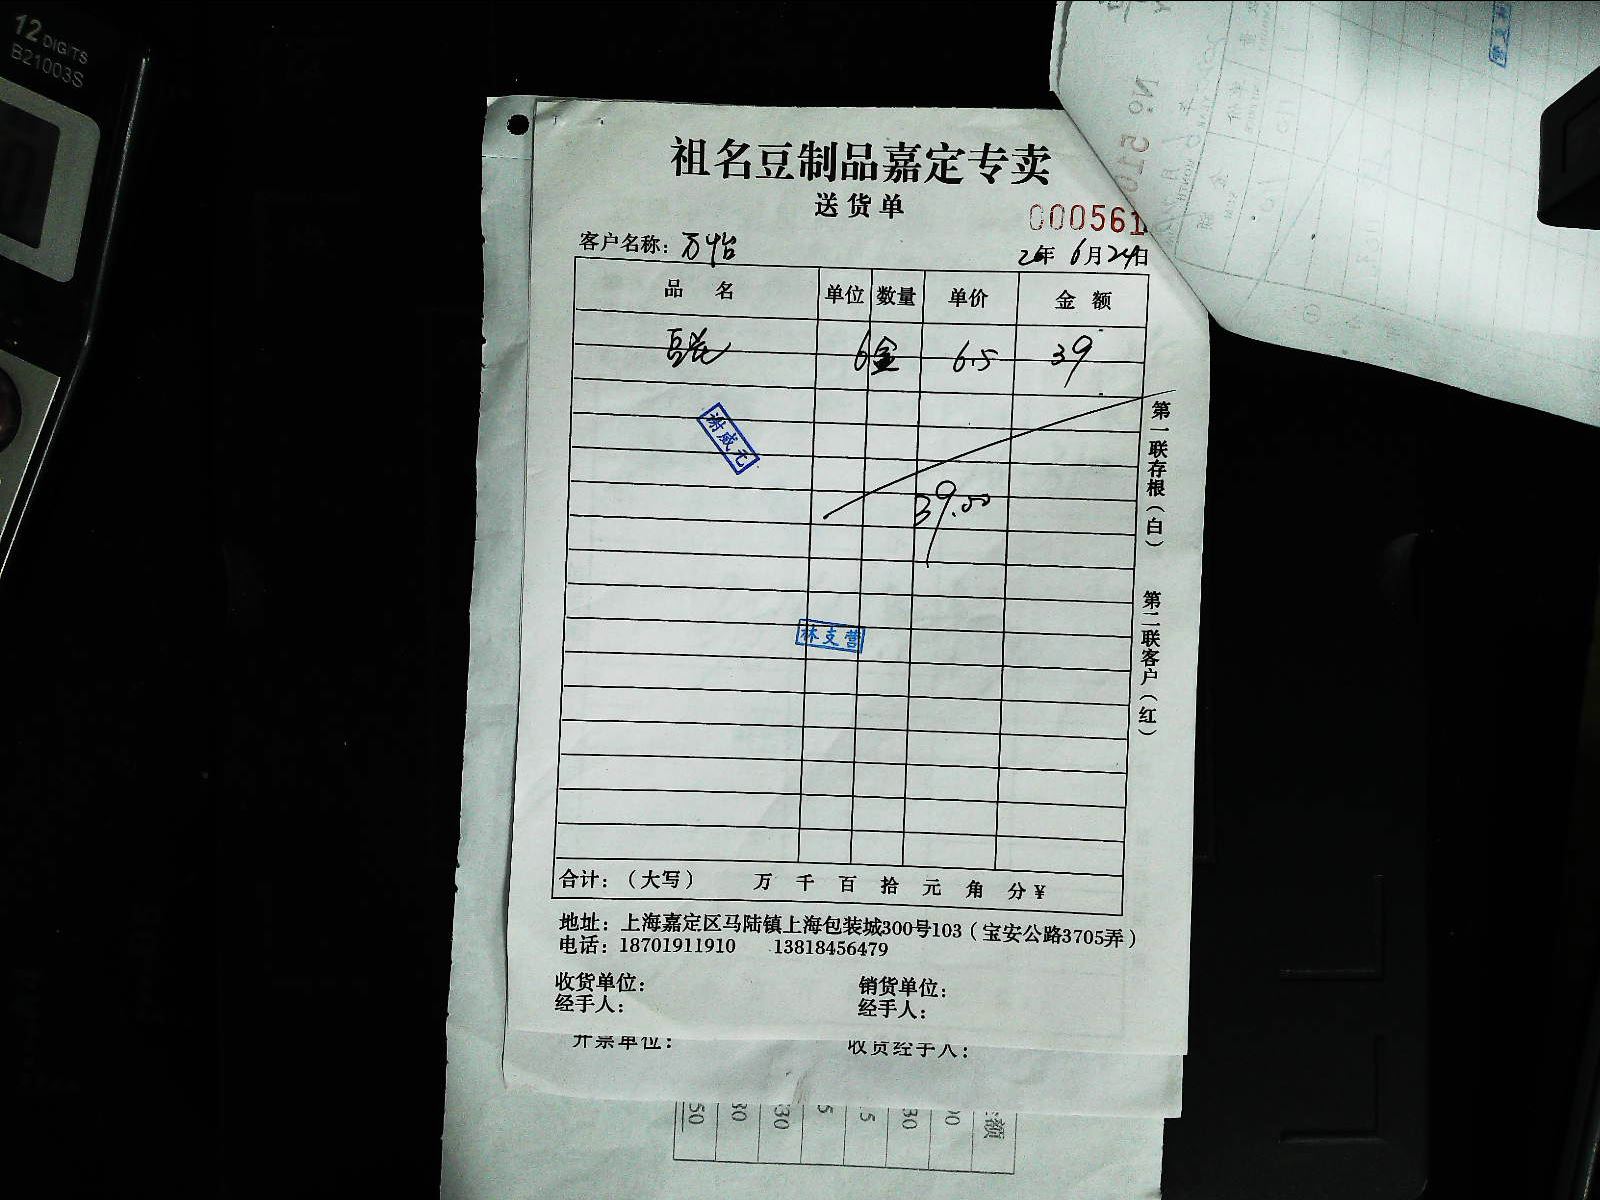 12 DIGITS
B21003S
祖名豆制品嘉定专卖
送货单
000561
客户名称：万怡
年 6月24日
品 名 单位 数量 单价 金 额
豆花 6盒 6.5 39
谢威
39.00
林支营
第一联存根（白） 第二联客户（红）
合计：（大写） 万 千 百 拾 元 角 分￥
地址：上海嘉定区马陆镇上海包装城300号103（宝安公路3705弄）
电话：18701911910 13818456479
收货单位： 销货单位：
经手人： 经手人：
开票单位： 收货经手人：